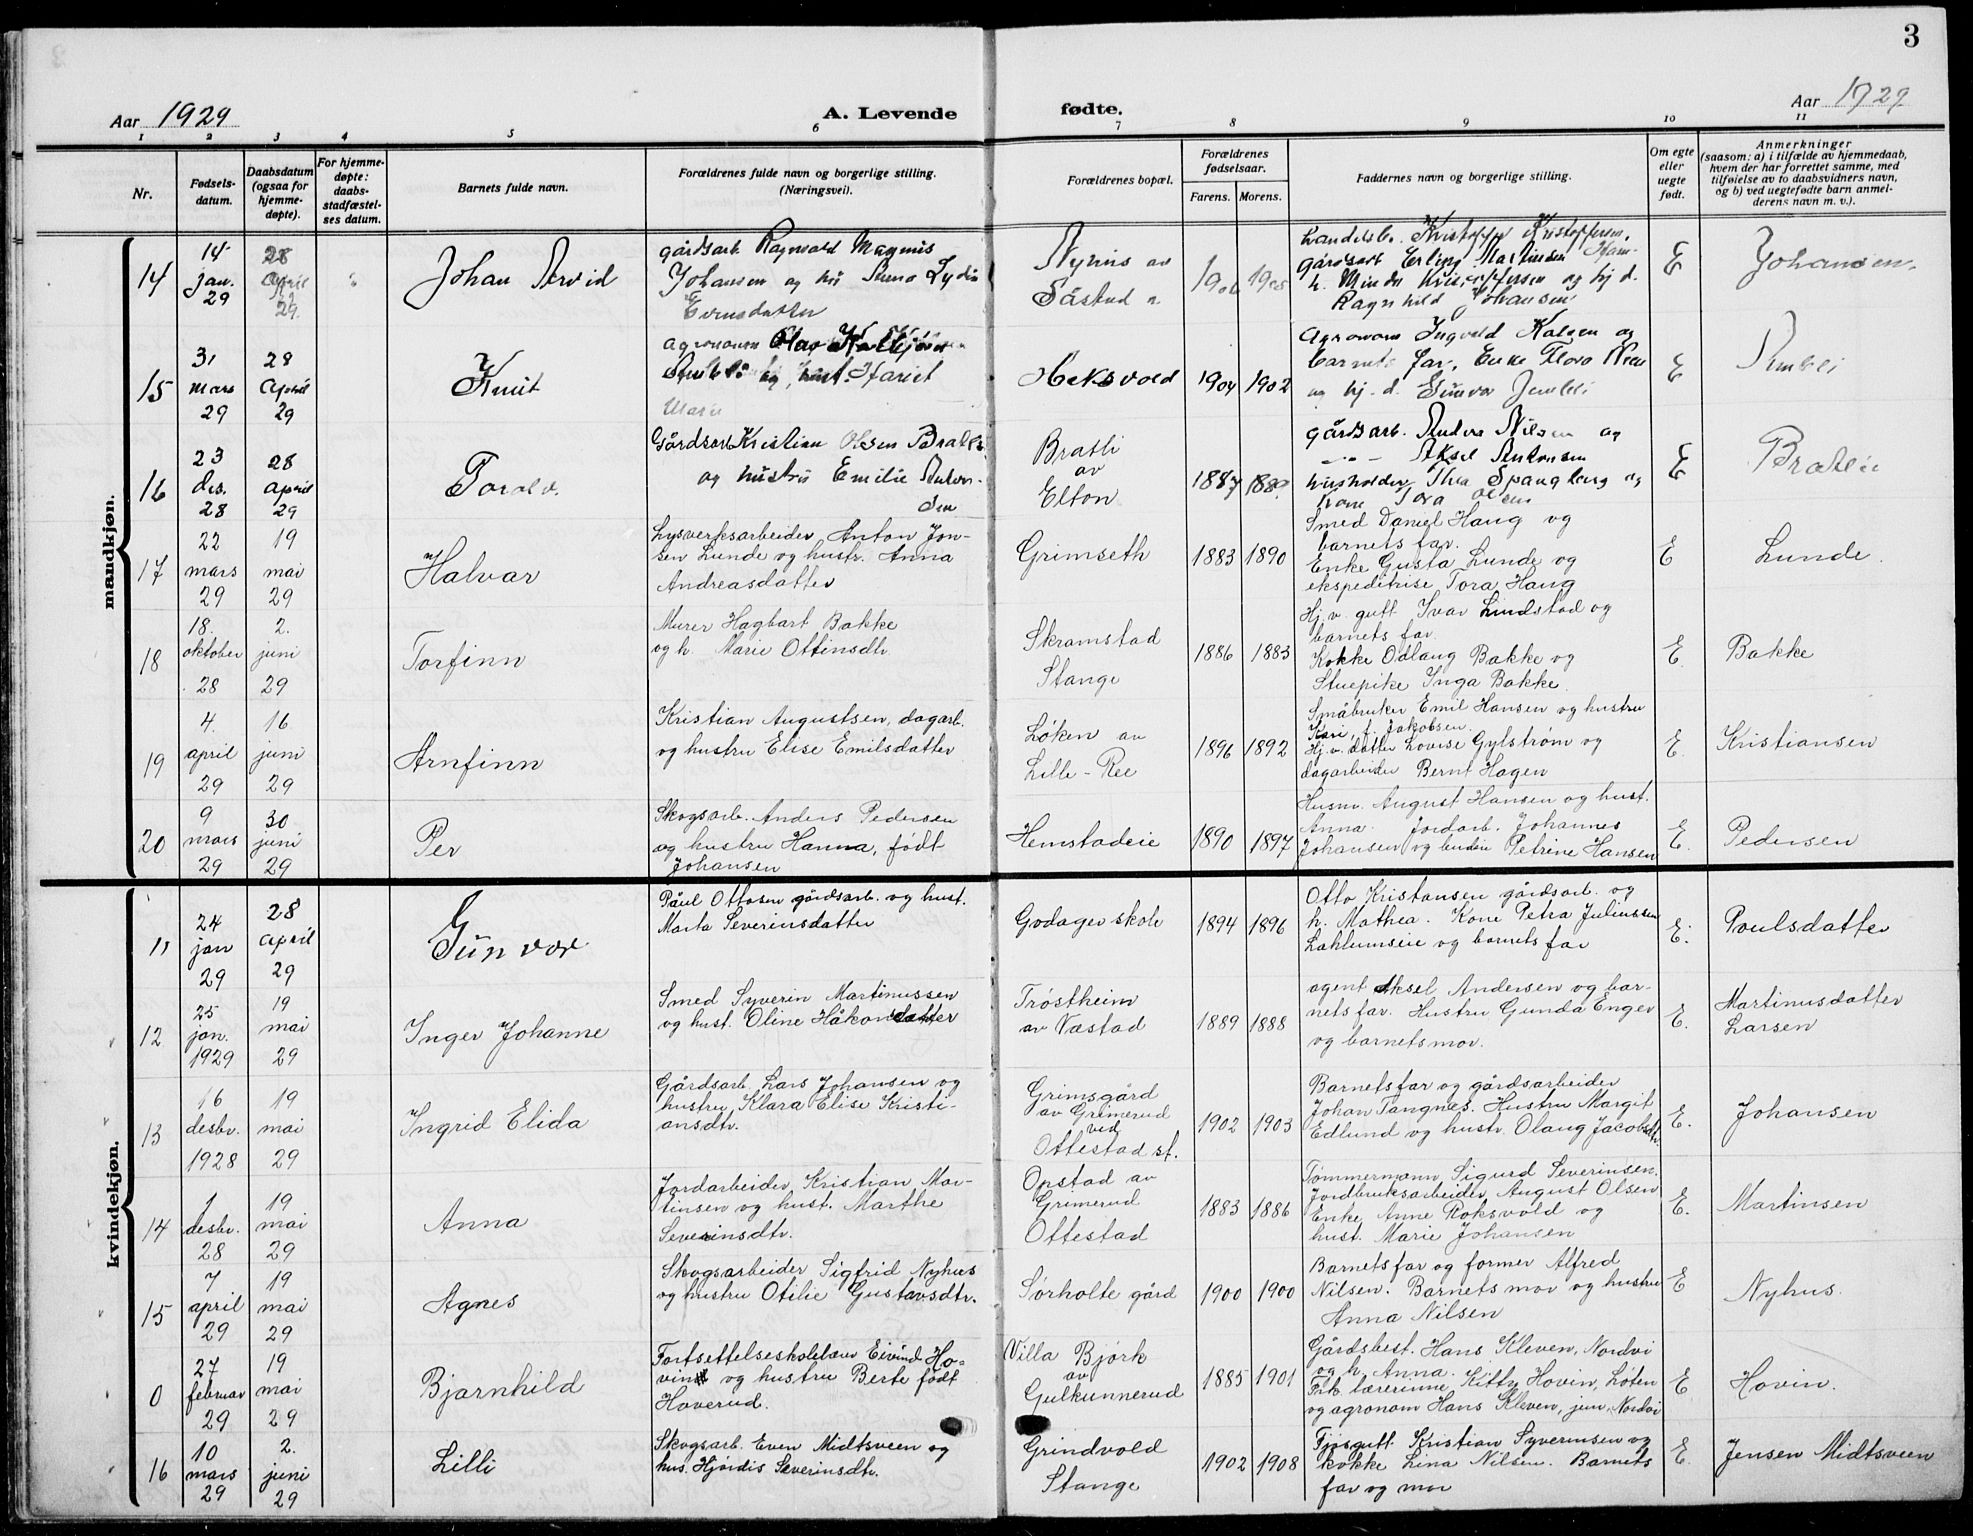 3
Aar 1929
A. Levende
fødte.
Aar 1929
1 2 3 4 5 6 7 8 9 10 11
Nr.
Fødsels-
datum.
Daabsdatum
(ogsaa for
hjemme-
døpte).
For hjemme-
døpte:
daabs-
stadfæstel-
ses datum.
Barnets fulde navn.
Forældrenes fulde navn og borgerlige stilling.
(Næringsvei).
Forældrenes bopæl.
Forældrenes
fødselsaar.
Farens. Morens.
Faddernes navn og borgerlige stilling.
Om egte
eller
uegte
født.
Anmerkninger
(saasom: a) i tilfælde av hjemmedaab,
hvem der har forrettet samme, med
tilføielse av to daabsvidners navn,
og b) ved uegtefødte barn anmel-
derens navn m. v.).
mandkjøn.
14
14
jan.
29
28
april
29.
Johan Arvid
gårdsarb. Ragnvald Magnus
Johansen og
Nyhus av
Såstad
Kristoffersen,
gårdsarb Erling Martinsen
Kristoffersen og hj d.
Ragnhild Johansen
E
Johansen.
15
31
mars
29
28
april
29
Knut
agronom Olav
og hust. Hariet
Marie
Heksvold
1904 1902
Agronom Ingvald
barnets far, Enke Flora
og hj. d. Gunvor Jembli
E
16
23
des.
28
28
april
29
Torolv.
Gårdsarb Kristian Olsen Bratli
og hustru Emilie Anton-
sen
Bratli
av
Elton
1887
gårdsarb. Anders Nilsen og
Aksel Antonsen
husholder Thea Spangberg og
Kone Tora Olsen
E
Bratli
17
22
mars
29
19
mai
29
Halvar
Lysverksarbeider Anton Jon-
sen Lunde og hustr. Anna
Andreasdatter
Grimseth
1883 1890
Smed Daniel Haug og
barnets far.
Enke Gusta Lunde og
ekspeditrise Tora Haug
E
Lunde.
18
18.
oktober
28
2.
juni
29
Torfinn
Murer Hagbart Bakke
og h. Marie Ottinsdtr.
Skramstad
Stange
1886 1883
Hj.v. gutt Ivar Lindstad og
barnets far.
Kokke Odlaug Bakke og
Stuepike Inga Bakke.
E.
Bakke
19
4.
april
29
16
juni
29
Arnfinn
Kristian Augustsen, dagarb.
og hustru Elise Emilsdatter
Løken av
Lille-Ree
1896 1892
Småbruker Emil Hansen og hustru
Kari, f. Jakobsen.
Hj.v. datter Lovise Gylstrøm og
dagarbeider Bernt Hagen
E.
Kristiansen
20
9
mars
29
30
juni
29
Per
Skogsarb. Anders Pedersen
og hustru Hanna, født
Johansen
Hemstadeie
1890 1897
Husm. August Hansen og hust.
Anna. Jordarb. Johannes
Johansen og budeie Petrine Hansen
E.
Pedersen
kvindekjøn.
11
24
jan
29
28
april
29
Gunvor
Paul Ottosen gårdsarb. og hust.
Marta Severinsdatter
Godager skole
1894 1896
Otto Kristansen gårdsarb. og
h. Mathea. Kone Petra Juliussen
Laklumseie og barnets far
E.
Poulsdatter
12
25
jan.
1929
19
mai
29
Inger Johanne
Smed Syverin Martinussen
og hust. Oline Håkonsdatter
Trøstheim
av Væstad
1889 1888
agent Aksel Andersen og bar-
nets far. Hustru Gunda Enger
og barnets mor.
E.
Martinusdatter
Larsen
13
16
desbr.
1928
19
mai
29
Ingrid Elida
Gårdsarb. Lars Johansen og
hustru Klara Elise Kristi-
ansdtr.
Grimsgård
av Grimerud
ved
Ottestad st.
1902 1903
Barnets far og gårdsarbeider
Johan Tangnes. Hustru Margit
Edlund og hustr. Olaug Jacobsdtr.
E.
Johansen
14
1
desbr.
28
19
mai
29
Anna
Jordarbeider Kristian Mar-
tinsen og hust. Marthe
Severinsdtr.
Opstad av
Grimerud
Ottestad
1883 1886
Tømmermann Sigurd Severinsen.
Jordbruksarbeider August Olsen
Enke Anne Roksvold og
hust. Marie Johansen
E.
Martinsen
15
7
april
29
19
mai
29
Agnes
Skogsarbeider Sigfrid Nyhus
og hustru Otilie Gustavsdtr.
Sørholte gård
1900 1900
Barnets far og former Alfred
Nilsen. Barnets mor og hustru
Anna Nilsen
E
Nyhus.
0
27
februar
29
19
mai
29
Bjarnhild
Fortsettelseskolelærer Eivind Ho-
vin og hustru Berte født
Hoverud.
Villa Bjørk
av
Gulkunnerud
1885 1901
Gårdsbest. Hans Kleven, Nordvi
og h. Anna.
Frk. lærerinne Kitty Hovin, Løten
og agronom Hans Kleven, jun. Nordvi
E
Hovin.
16
10
mars
29
2.
juni
29
Lilli
Skogsarb. Even Midtsveen og
hus. Hjørdis Severinsdtr.
Grindvold
Stange
1902 1908
Fjøsgutt Kristian Syverinsen og
kokke Lina Nilsen. Barnets
far og mor
E.
Jensen Midtsveen